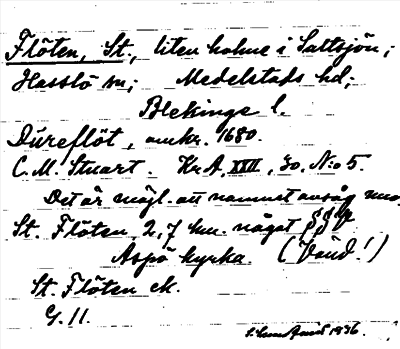 Flöten, St., liten holme i Saltsjön;
Hasslö sn; Medelstads hd;
Blekinge l.
Düreflöt, omkr. 1680.
C. M. Stuart. Kr. A. XXII, 30. N:o 5.
Det är möjl. att namnet avsåg
St. Flöten 2,7 km. något
Aspö kyrka. (Vänd!)
St. Flöten ek.
G. 11.
1936.